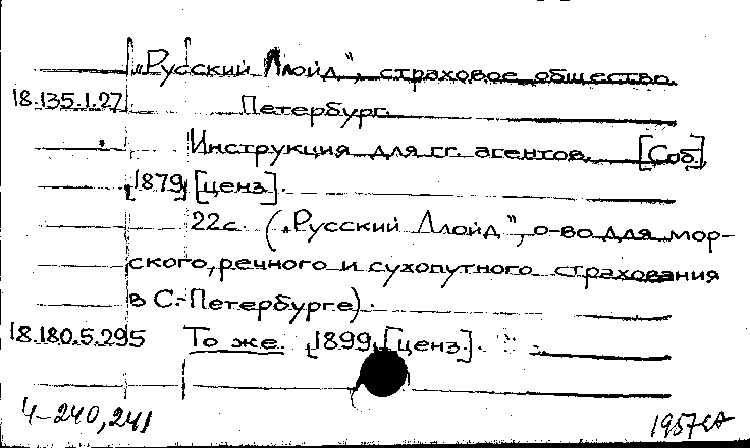 „Русский Ллойд", страховое общество.
18.135.1.27 Петербург.
Инструкция для гг. агентов. [Соб.],
1879, [ценз].
22с. („Русский Ллойд", о-во для мор-
ского, речного и сухопутного страхования
в С.-Петербурге).
18.180.5.295 То же. 1899, [ценз.].
4-240,241